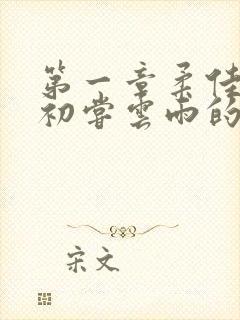 第一章柔佳
初尝云雨的
宋文